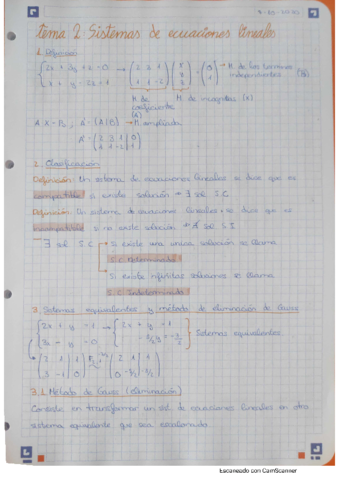 tema 2 Sistemas de ecuaciones lineales
1. Definición
2x + 3y + z = 0
M de los términos independientes (B)
M de coeficientes (A)
M de incógnitas (X)
A·X = B, A' = (A|B) → M ampliada
2. Clasificación
Definición: Un sistema de ecuaciones lineales se dice que es
compatible si existe solución → ∃ sol S.C
Definición: Un sistema de ecuaciones lineales se dice que es
incompatible si no existe solución → ∄ sol S.I
∃ sol S.C → Si existe una única solución se llama
S.C. Determinado
Si existe infinitas soluciones se llama
S.C. Indeterminado
3. Sistemas equivalentes y método de eliminación de Gauss
2x + y = 1
3x - y = 0
Sistemas equivalentes
3.1 Método de Gauss (eliminación)
Consiste en transformar un sist. de ecuaciones lineales en otro
sistema equivalente que sea escalonado.
Escaneado con CamScanner